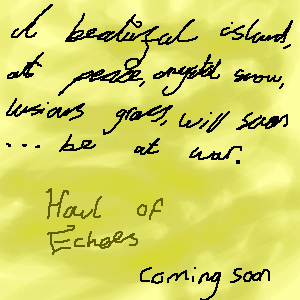 A beatiful island,
at peace, crystal snow,
lusious grass, will soon
... be at war.
Howl of
Echoes
Coming soon